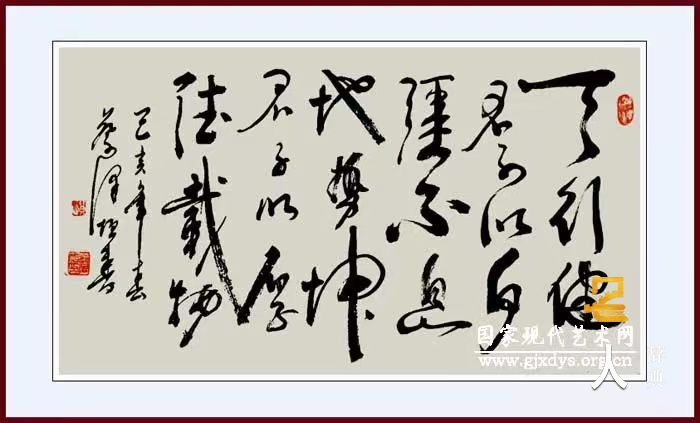 天行健
君子以自
彊不息
地勢坤
君子以厚
德載物
己亥年春
蔡澤書
国家现代艺术网
www.gjxdys.org.cn